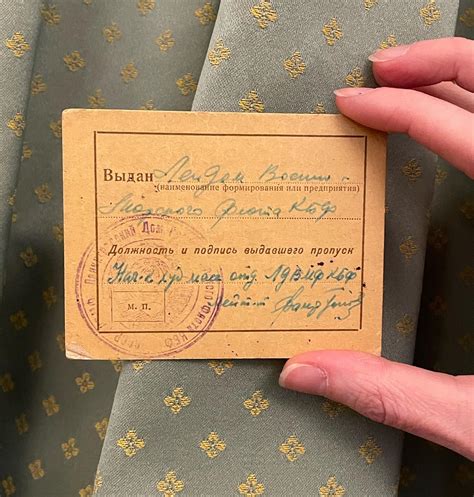 Выдан Лендом Военно-
(наименование формирования или предприятия)
Морского Флота КБФ
Должность и подпись выдавшего пропуск
Нач-к худ. масс отд. ЛДВМФ КБФ
М. П.